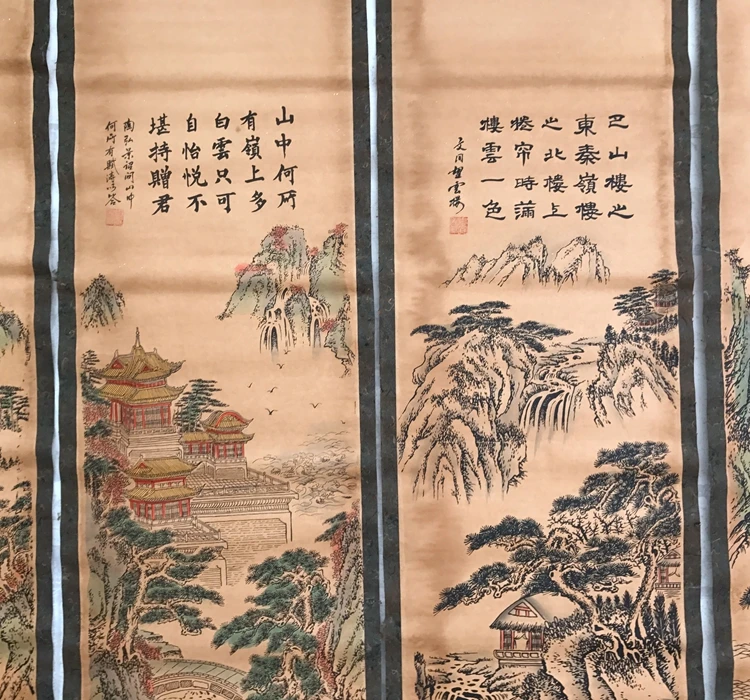 巴山樓之
東秦嶺樓
之北樓上
捲帘時滿
樓雲一色
文同望雲樓
山中何所
有嶺上多
白雲只可
自怡悅不
堪持贈君
陶弘景詔問山中
何所有賦詩以答